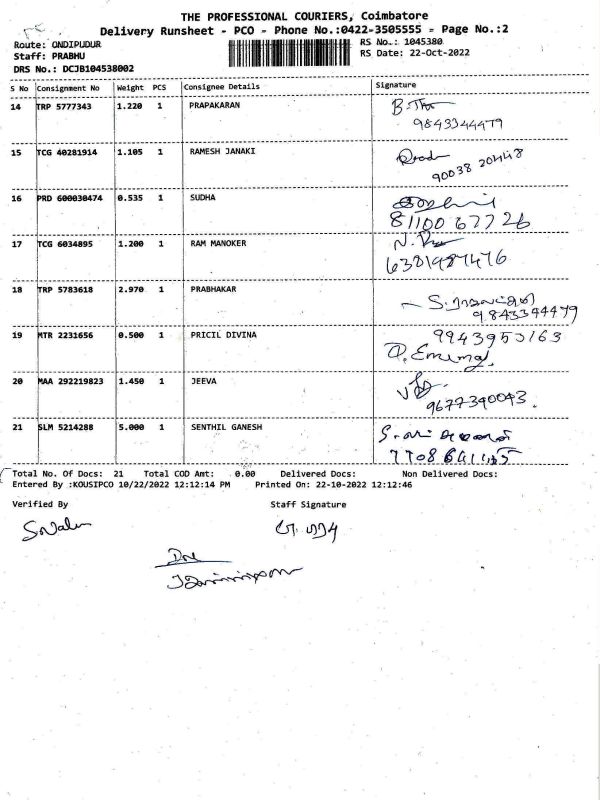 THE PROFESSIONAL COURIERS, Coimbatore
Delivery Runsheet - PCO - Phone No.:0422-3505555 - Page No.:2
Route: ONDIPUDUR
RS No.: 1045380
Staff: PRABHU
RS Date: 22-Oct-2022
DRS No.: DCJB104538002
S No Consignment No Weight PCS Consignee Details Signature
14 TRP 5777343 1.220 1 PRAPAKARAN
9843344479
15 TCG 40281914 1.105 1 RAMESH JANAKI
90038 20448
16 PRD 600030474 0.535 1 SUDHA
81100 67726
17 TCG 6034895 1.200 1 RAM MANOKER
6381987476
18 TRP 5783618 2.970 1 PRABHAKAR
9843344479
19 MTR 2231656 0.500 1 PRICIL DIVINA 9943953163
20 MAA 292219823 1.450 1 JEEVA
9677390043.
21 SLM 5214288 5.000 1 SENTHIL GANESH
Total No. Of Docs: 21 Total COD Amt: 0.00 Delivered Docs: Non Delivered Docs:
Entered By :KOUSIPCO 10/22/2022 12:12:14 PM Printed On: 22-10-2022 12:12:46
Verified By Staff Signature